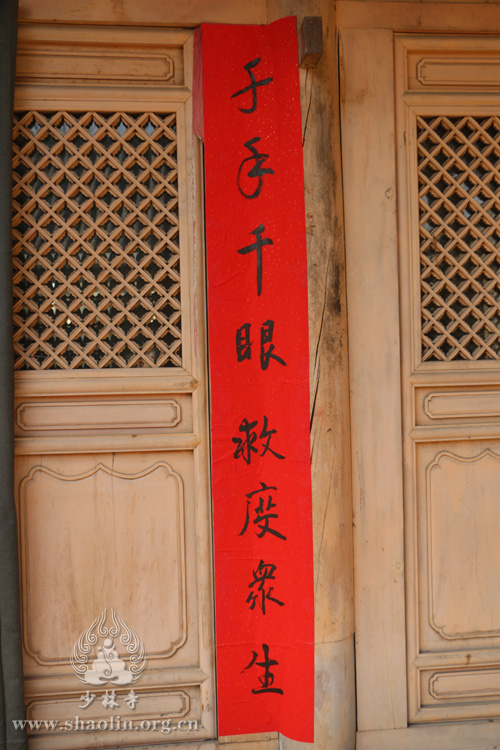 千手千眼救度眾生
少林寺
www.shaolin.org.cn